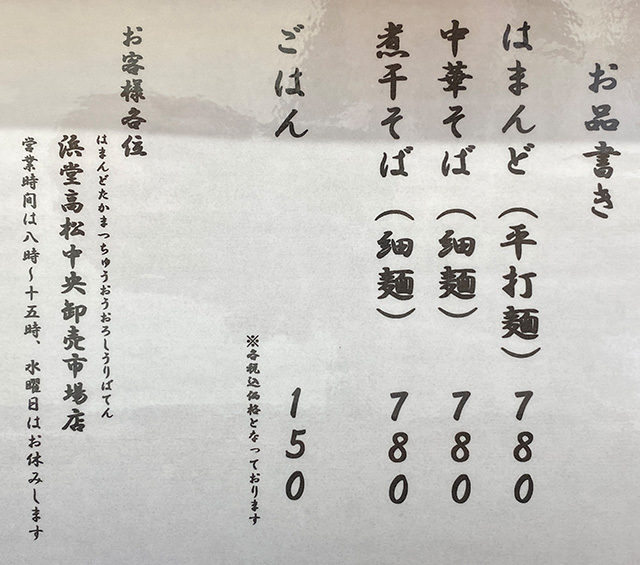 お品書き
はまんど（平打麺）780
中華そば（細麺）780
煮干そば（細麺）780
ごはん 150
※各税込価格となっております
お客様各位
はまんどたかまつちゅうおうおろしうりばてん
浜堂高松中央卸売市場店
営業時間は八時～十五時、水曜日はお休みします